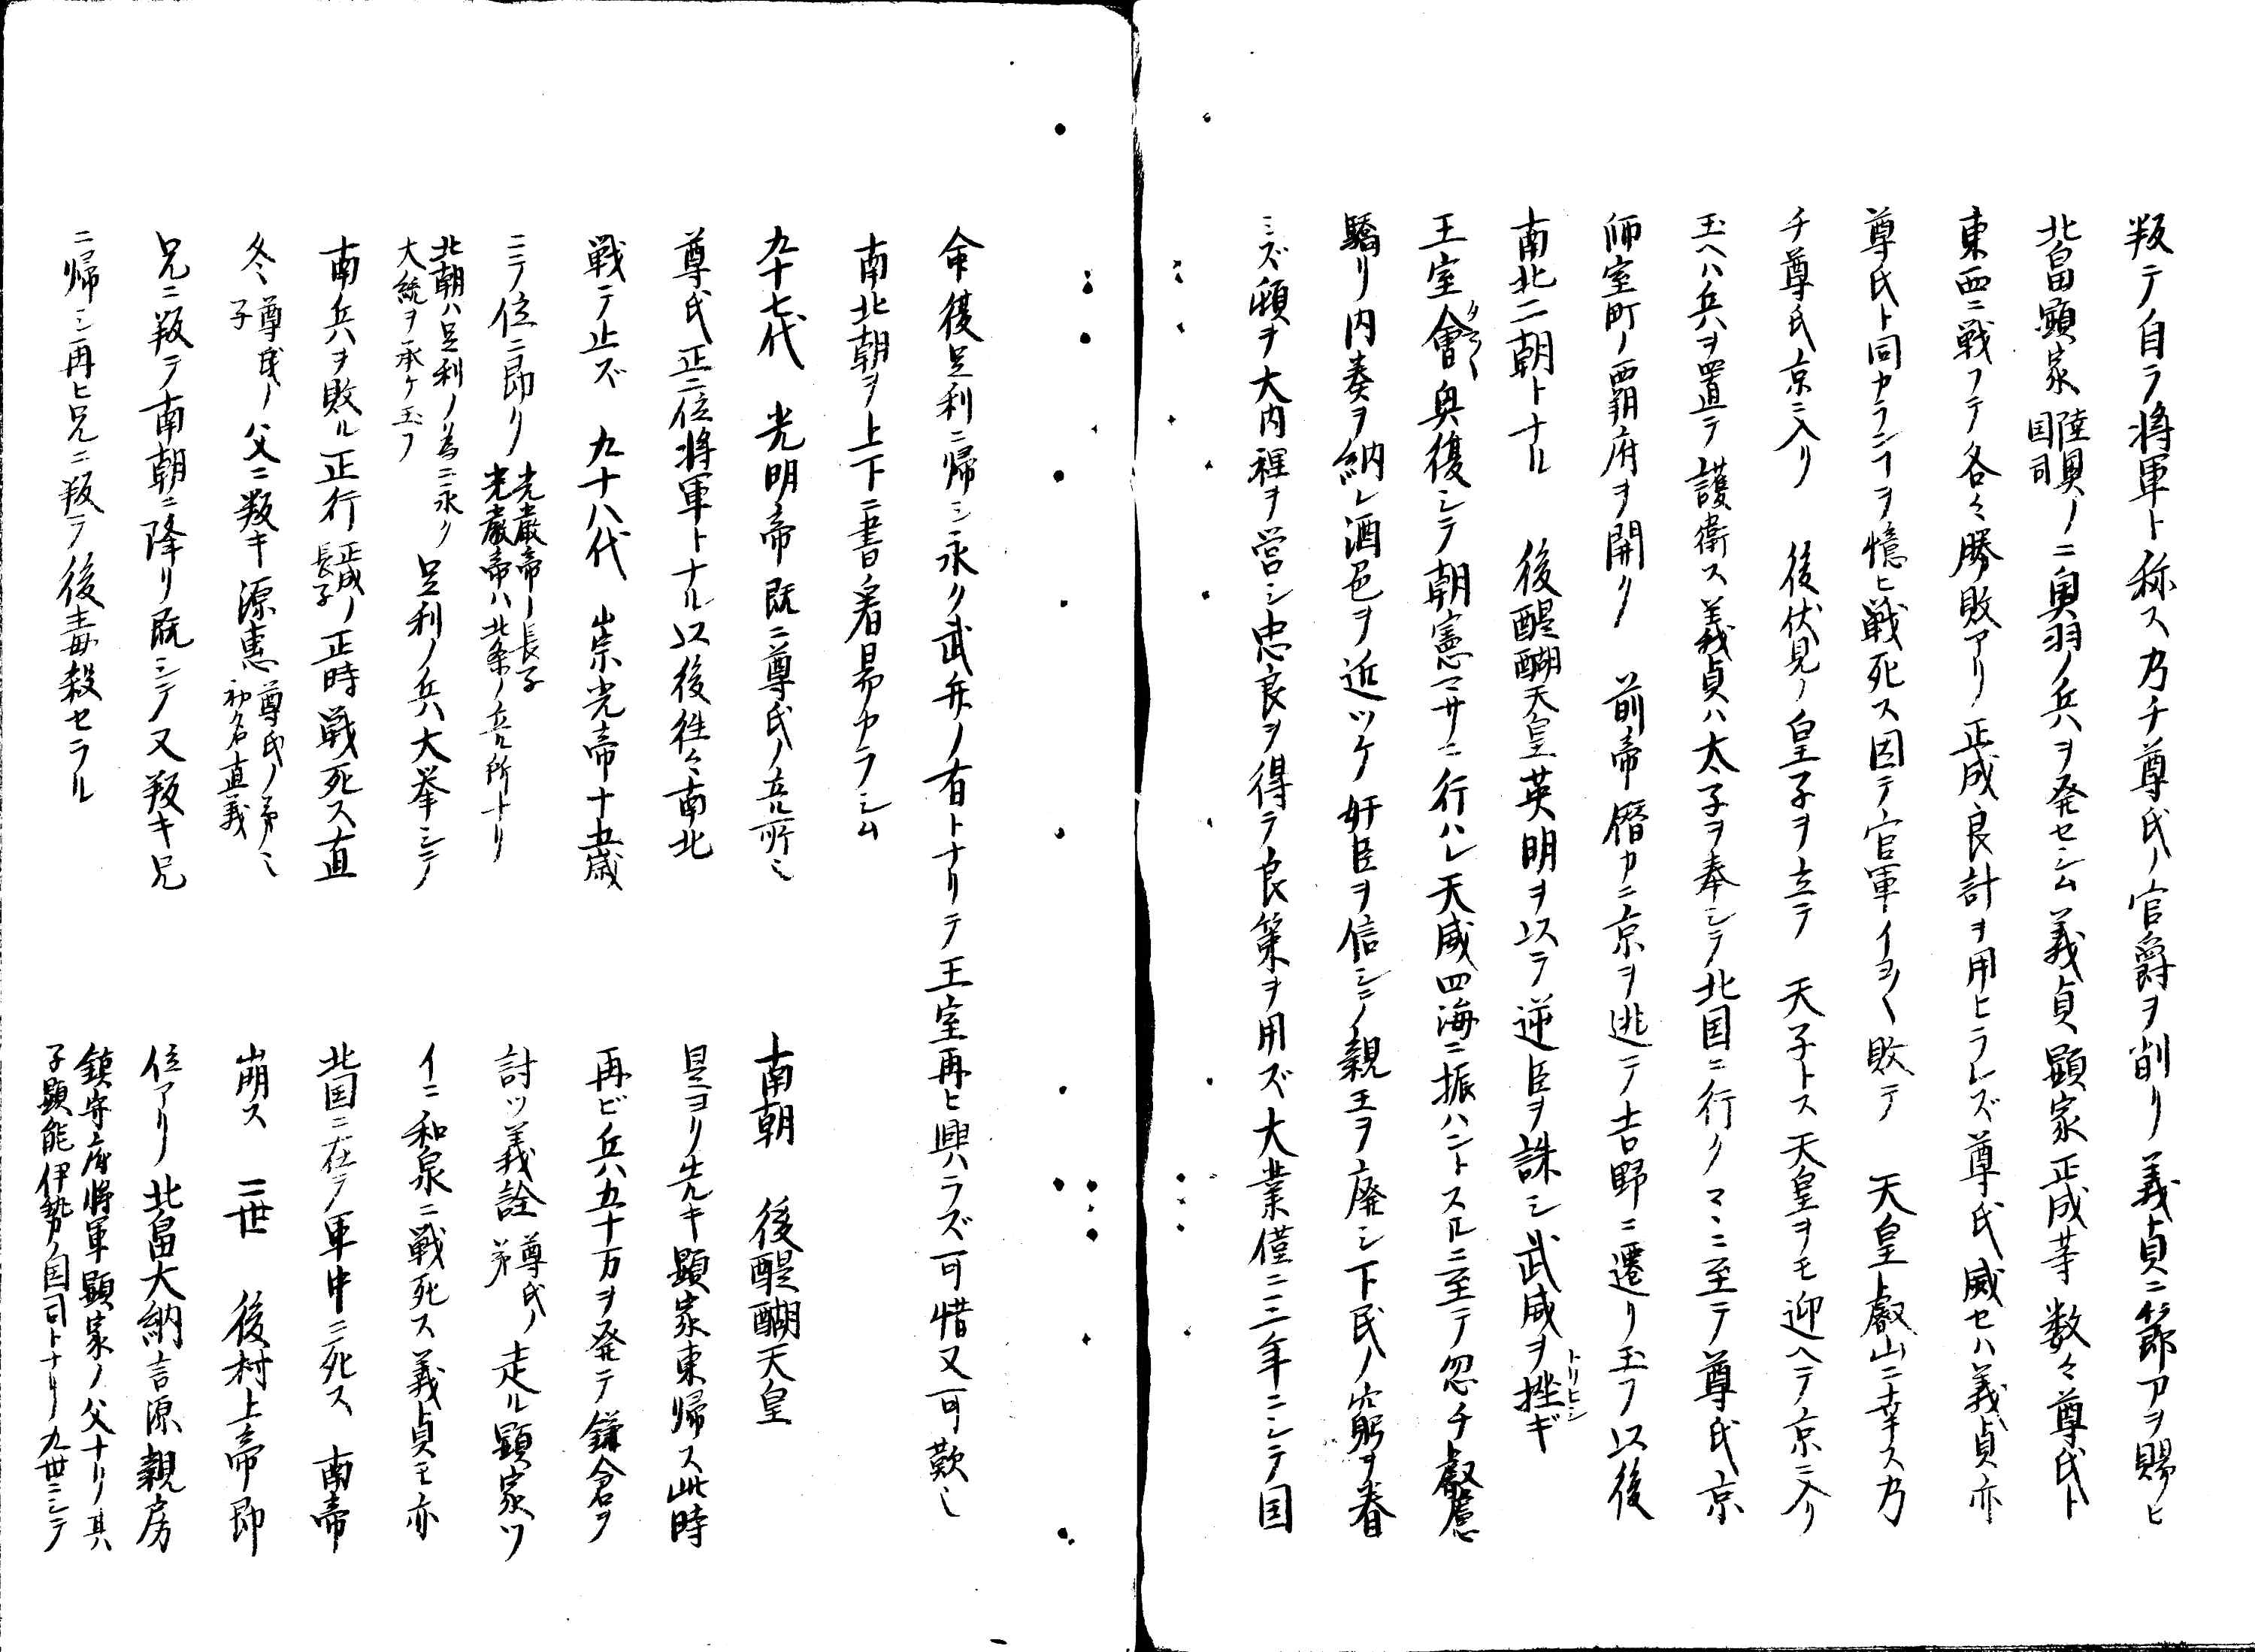 叛テ自ラ将軍ト称ス乃チ尊氏ノ官爵ヲ削リ義貞ニ節刀ヲ賜ヒ
北畠顕家陸奥ノ国司ニ奥羽ノ兵ヲ発セシム義貞顕家正成等数々尊氏ト
東西ニ戦フテ各々勝敗アリ正成良計ヲ用ヒラレズ尊氏威セハ義貞亦
尊氏ト同カラン丁ヲ憶ヒ戦死ス因テ官軍イヨ〱敗テ 天皇叡山ニ幸ス乃
チ尊氏京ニ入リ 後伏見ノ皇子ヲ立テ 天子トス天皇ヲモ迎ヘテ京ニ入リ
玉ヘハ兵ヲ置テ護衛ス義貞ハ太子ヲ奉シテ北国ニ行クマヽニ至テ尊氏京
師室町ノ覇府ヲ開ク 前帝潜カニ京ヲ逃テ吉野ニ遷リ玉フ以後
南北二朝トナル 後醍醐天皇英明ヲ以テ逆臣ヲ誅シ武威ヲ挫ギ
トリヒシ
王室會興復シテ朝憲マサニ行ハレ天威四海ニ振ハントスルニ至テ忽チ叡慮
驕リ内奏ヲ納レ酒色ヲ近ツケ奸臣ヲ信シテ親王ヲ廃シ下民ノ窮ヲ眷
ミズ頻ヲ大内裡ヲ営シ忠良ヲ得テ良策ヲ用ズ大業僅ニ三年ニシテ国
命復足利ニ帰シ永ク武弁ノ有トナリテ王室再ヒ興ハラズ可惜又可歎シ
南北朝ヲ上下ニ書シ看易カラシム
九十七代 光明帝既ニ尊氏ノ立ル所ミ
尊氏正二位将軍トナル以後往々南北
戦テ止ズ 九十八代 崇光帝十五歳
ニテ位ニ即ク
光嚴帝ノ長子
光嚴帝ハ北条ノ立ル所トナリ
北朝ハ足利ノ為ニ永ク
大統ヲ承ケ玉フ
足利ノ兵大挙シテ
南兵ヲ敗ル正行正成ノ長子正時戦死ス直
冬尊氏ノ子父ニ叛キ源恵
尊氏ノ弟ミ
初名直義
兄ニ叛テ南朝ニ降リ既シテ又叛キ兄
ニ帰シ再ヒ兄ニ叛テ後毒殺セラル
南朝 後醍醐天皇
是ヨリ先キ顕家東帰ス此時
再ビ兵八五十万ヲ発テ鎌倉ヲ
討ツ義詮尊氏ノ弟走ル顕家ツ
イニ和泉ニ戦死ス義貞モ亦
北国ニ在テ軍中ニ死ス 南帝
崩ス 二世 後村上帝即
位アリ 北畠大納言源親房
鎮守府将軍顕家ノ父ナリ其
子顕能伊勢ノ国司トナリ九世ニシテ